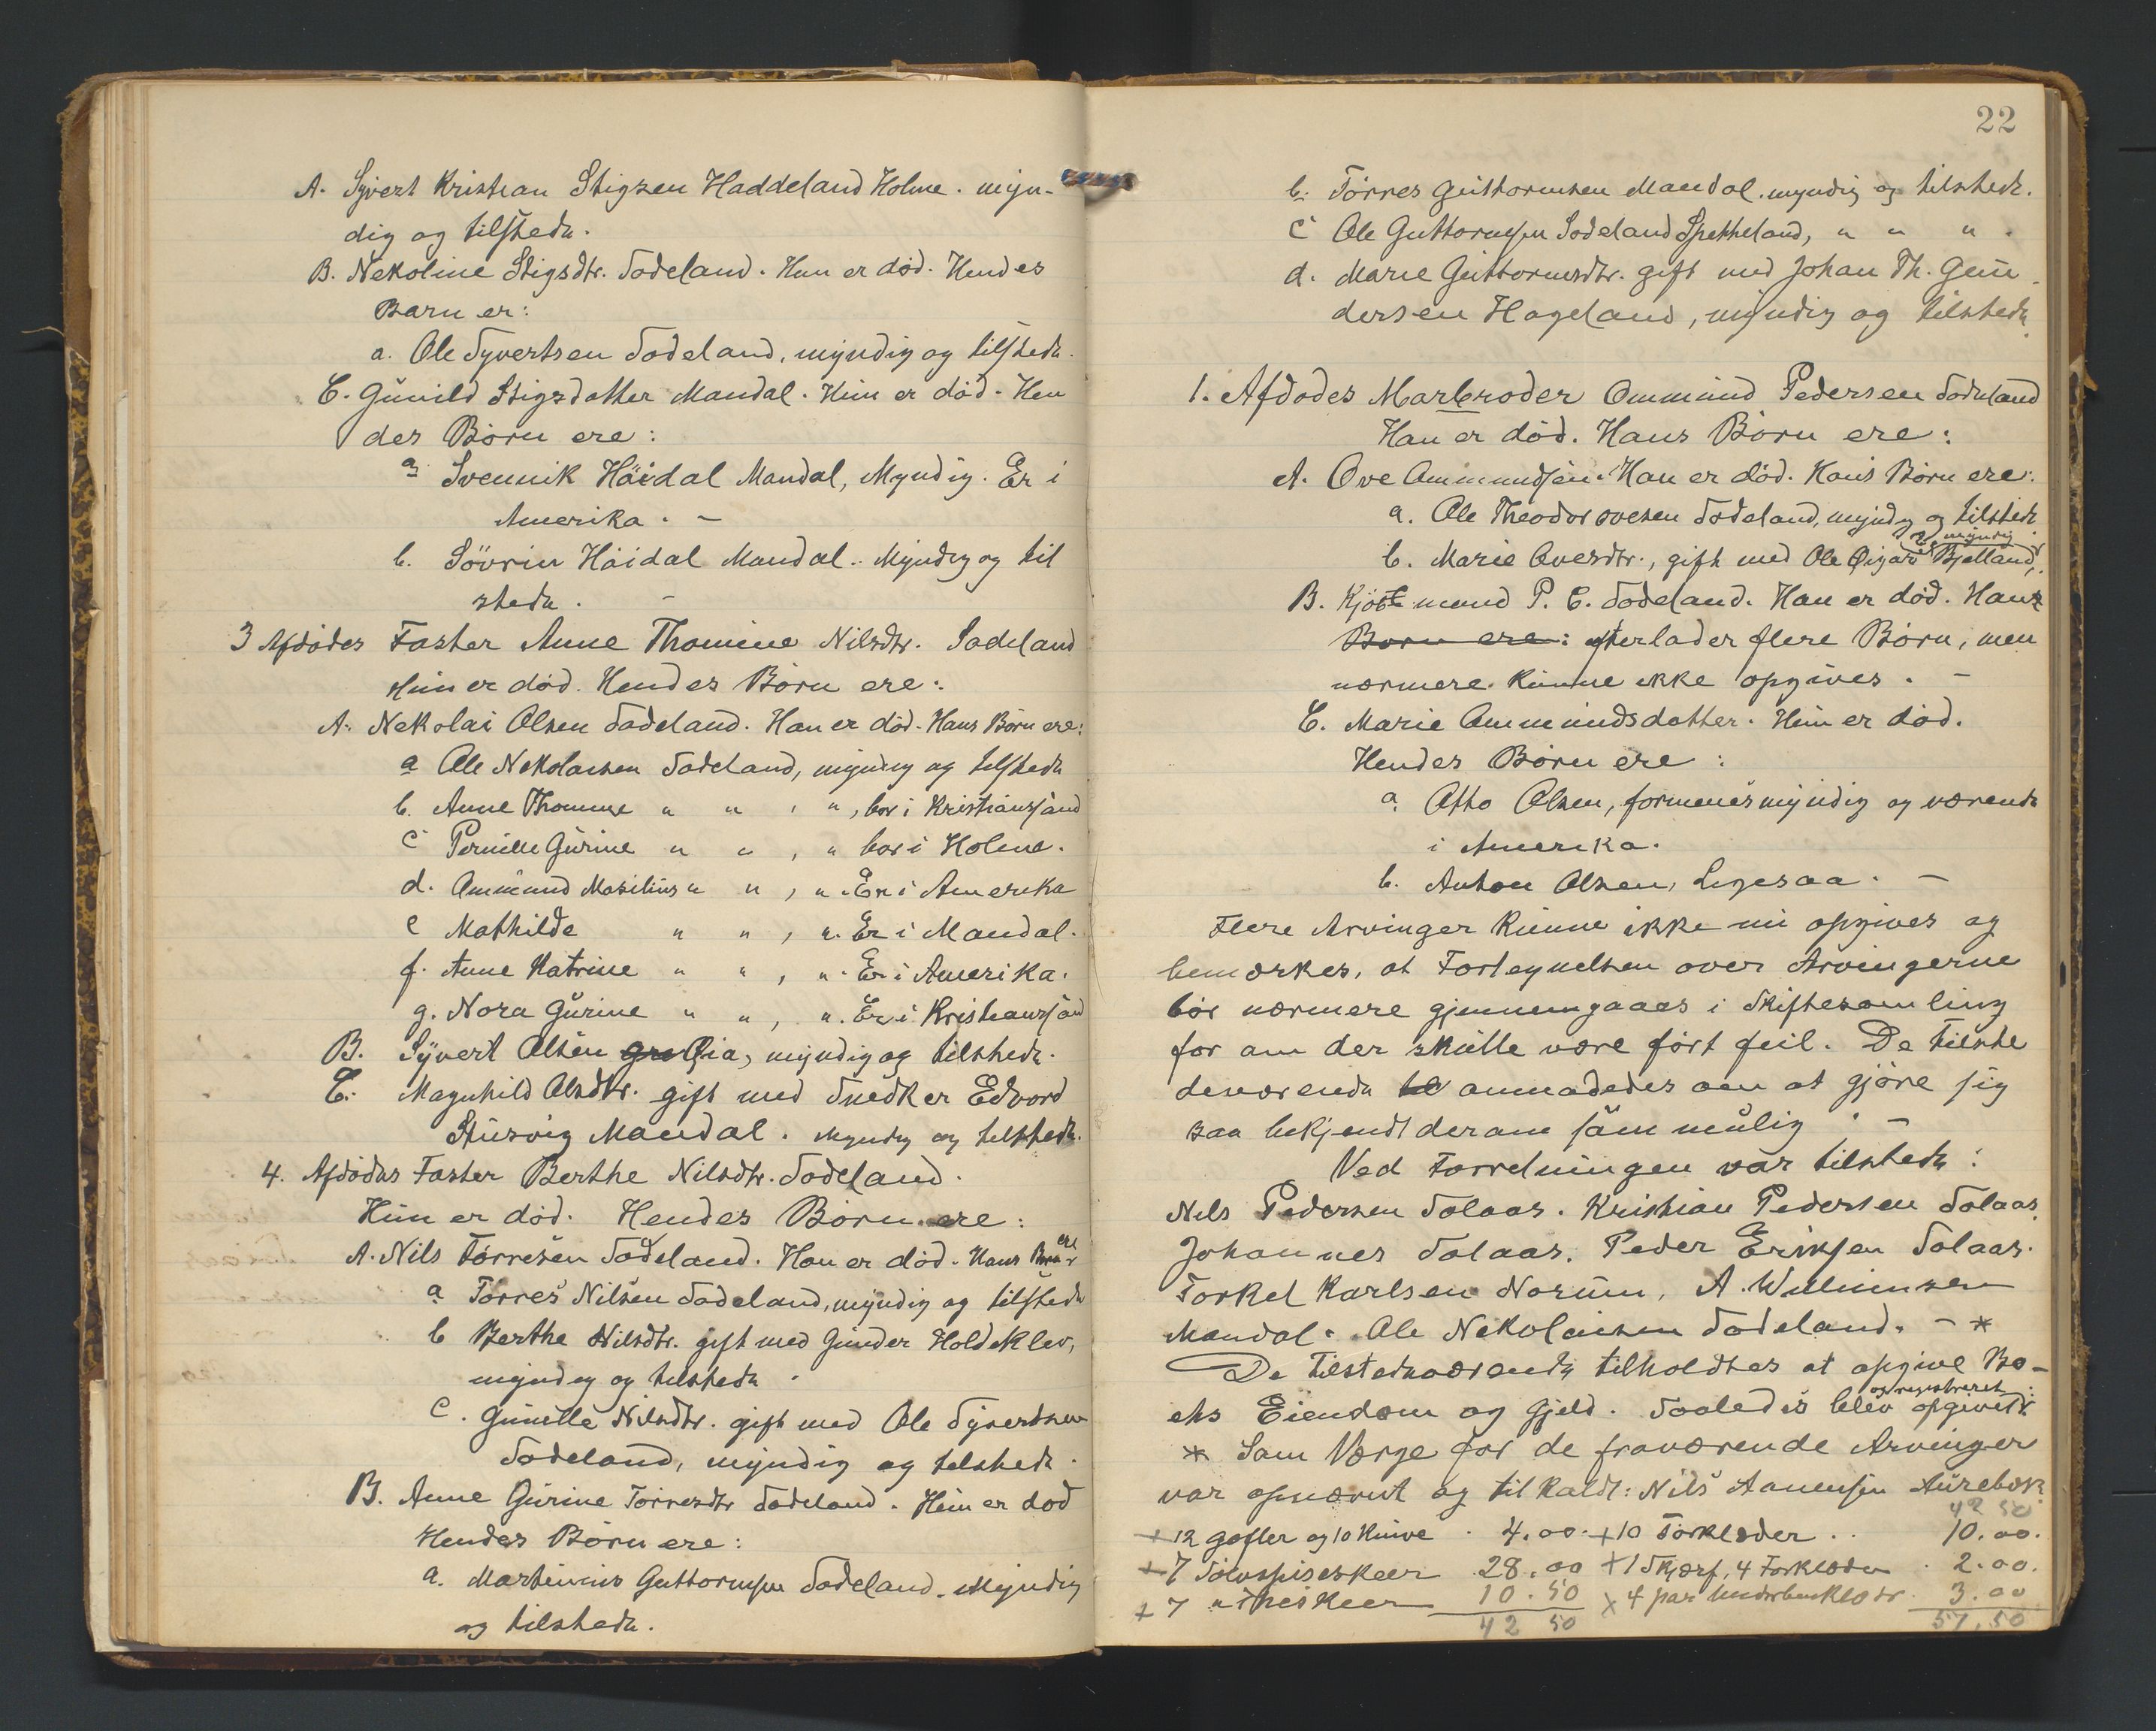 A. Syvert Kristian Stigsen Haddeland Holme. myn-
dig og tilstede.
B. Nekoline Stigsdtr. Sodeland. Hun er död. Hendes
Barn er:
a. Ole Syvertsen Sodeland, myndig og tilstede.
C. Gŭnild Stigsdatter Mandal. Hŭn er död. Hen
des Börn ere:
a. Svennik Höidal Mandal, Myndig. Er i
Amerika. -
b. Sövrin Höidal Mandal. Myndig og til
stede. -
3 Afdödes Faster Anne Thomine Nilsdtr. Sodeland
Hŭn er död. Hendes Börn ere:
A. Nekolai Olsen Sodeland. Han er död. Hans Börn ere:
a Ole Nekolaisen Sodeland, myndig og tilstede
b. Anne Thomine " " , ", bor i Kristiansand
c Pernille Gŭrine " " , " bor i Holme.
d. Ammŭnd " " , ". Er i Amerika
e Mathilde " " , ". Er i Mandal.
f. Anne Katrine " " , ". Er i Amerika.
g. Nora Gŭrine " " , ". Er i Kristiansand
B. Syvert Olsen Øia, myndig og tilstede.
C. Magnhild Olsdtr. gift med Snedker Edvard
Stŭsvig Mandal. Myndig og tilstede.
4. Afdödes Faster Berthe Nilsdtr. Sodeland.
Hŭn er död. Hendes Börn ere:
A. Nils Törresen Sodeland. Han er död. Hans Börn ere
a Törres Nilsen Sodeland, myndig og tilstede
b Berthe Nilsdtr. gift med Gŭnder Holdeklev,
myndig og tilstede.
c. Gŭnille Nilsdtr. gift med Ole Syvertsen
Sodeland, myndig og tilstede.
B. Anne Gŭrine Törresdtr Sodeland. Hŭn er död
Hendes Börn ere:
a. Martinius Guttormsen Sodeland. Myndig
og tilstede.
22
b. Törres Gŭttormsen Mandal. myndig og tilstede.
c Ole Guttormsen Sodeland Spetteland, " " " .
d. Marie Gŭttormsdtr. gift med Johan Th. Gŭn
dersen Hageland, myndig og tilstede.
1. Afdödes Morbroder Ommŭnd Pedersen Sodeland
Han er död. Hans Börn ere:
A. Ove Ommundsen. Han er död. Hans Börn ere:
a. Ole Theodor Ovesen Sodeland, myndig og tilstede
b. Marie Ovesdtr., gift med Ole Bjelland, er myndig
B. Kjöbmand P. C. Sodeland. Han er död. Hans
Börn ere: efterlader flere Börn, men
nærmere kŭnne ikke opgives. -
C. Marie Ommŭndsdatter. Hŭn er död.
Hendes Börn ere:
a. Otto Olsen, formenes myndig og værende
i Amerika.
b. Anton Olsen, Ligesaa. -
Flere Arvinger kŭnne ikke nŭ opgives og
bemærkes, at Fortegnelsen over Arvingerne
bör nærmere gjennemgaaes i Skiftesamling
for om der skŭlle være fört feil. De tilste
deværende anmodedes om at gjöre sig
saa bekjendt derom som mŭlig. -
Ved Forretningen var tilstede:
Nils Pedersen Solaas. Kristian Pedersen Solaas.
Johannes Solaas. Peder Eriksen Solaas.
Torkel Karlsen Norŭm, A. Willumsen
Mandal. Ole Nekolaisen Sodeland. - *
De tilstedeværende tilholdtes at opgive Bo-
ets Eiendom og Gjeld. Saaledes blev opgivet og registreret:
* Som Verge for de fraværende Arvinger
var opnævnt og tilkaldt: Nils Aanensen Aŭrebæk
42 50
+ 12 gafler og 10 Knive . 4.00. + 10 Törklæder . . 10.00.
+ 7 Sölvspiseskeer 28.00 + 1 Skjærf, 4 Forklæder . 2.00.
+ 7 " Theskeer 10.50 x 4 par Underbenklæder. 3.00
42 50 57,50